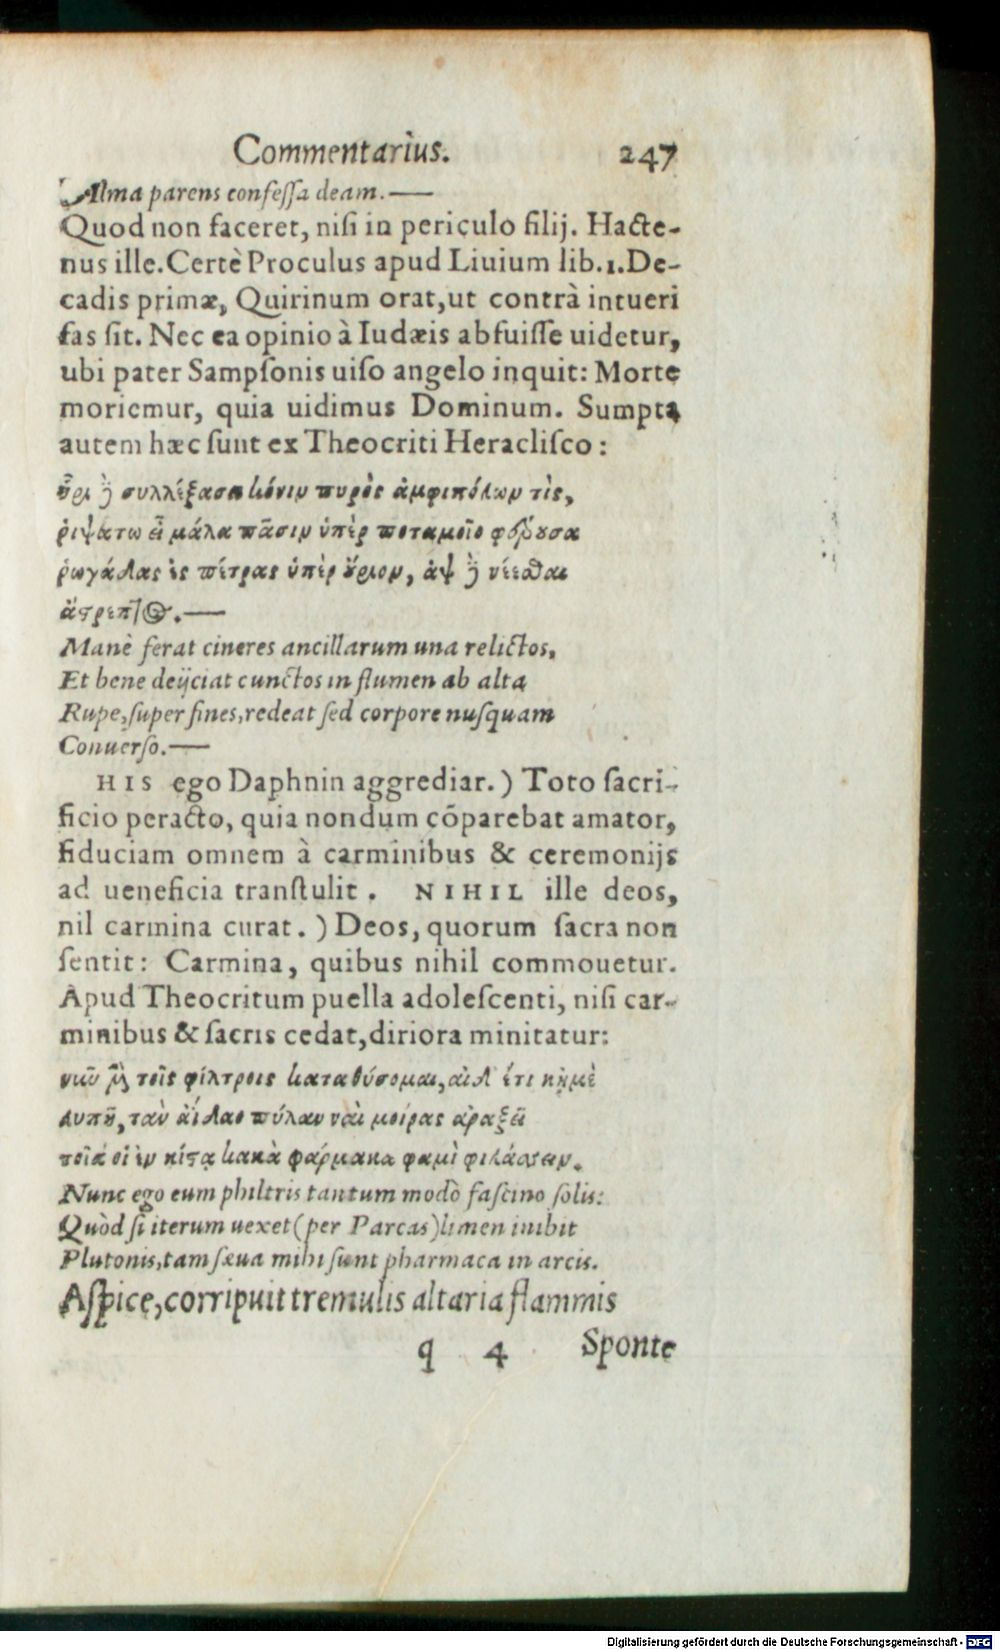 Commentarius. 247
Alma parens confeſſa deam.——
Quod non faceret, niſi in periculo filij. Hacte-
nus ille. Certè Proculus apud Liuium lib.1. De-
cadis primæ, Quirinum orat, ut contrà intueri
fas ſit. Nec ea opinio à Iudæis abfuiſſe uidetur,
ubi pater Sampſonis uiſo angelo inquit: Morte
moriemur, quia uidimus Dominum. Sumpta
autem hæc ſunt ex Theocriti Heracliſco:
ἦρι δὲ συλλέξασα κόνιν πυρὸς ἀμφιπόλων τὶς,
ῥιψάτω εὖ μάλα πᾶσιν ὑπὲρ ποταμοῖο φέρουσα
ῥωγάδας ἐς πέτρας ὑπὲρ οὔριον, ἀψ δὲ νέεσθαι
ἄστρεπτος.——
Manè ferat cineres ancillarum una relictos,
Et bene deijciat cunctos in flumen ab alta
Rupe, ſuper fines, redeat ſed corpore nuſquam
Conuerſo.——
HIS ego Daphnin aggrediar.) Toto ſacri-
ficio peracto, quia nondum cõparebat amator,
fiduciam omnem à carminibus & ceremonijs
ad ueneficia tranſtulit. NIHIL ille deos,
nil carmina curat.) Deos, quorum ſacra non
ſentit: Carmina, quibus nihil commouetur.
Apud Theocritum puella adoleſcenti, niſi car-
minibus & ſacris cedat, diriora minitatur:
νῦν μὰν τοῖς φίλτροις καταθύσομαι, αἰ δ' ἔτι κῃμὲ
λυπῇ, τὰν ἀΐδαο πύλαν ναὶ μοίρας ἀραξεῖ
τοῖά οἱ ἐν κίστᾳ κακὰ φάρμακα φαμὶ φυλάσσειν.
Nunc ego eum philtris tantum modò faſcino ſolis:
Quòd ſi iterum uexet (per Parcas) limen inibit
Plutonis, tam ſæua mihi ſunt pharmaca in arcis.
Aſpice, corripuit tremulis altaria flammis
q 4 Sponte
Digitalisierung gefördert durch die Deutsche Forschungsgemeinschaft - DFG